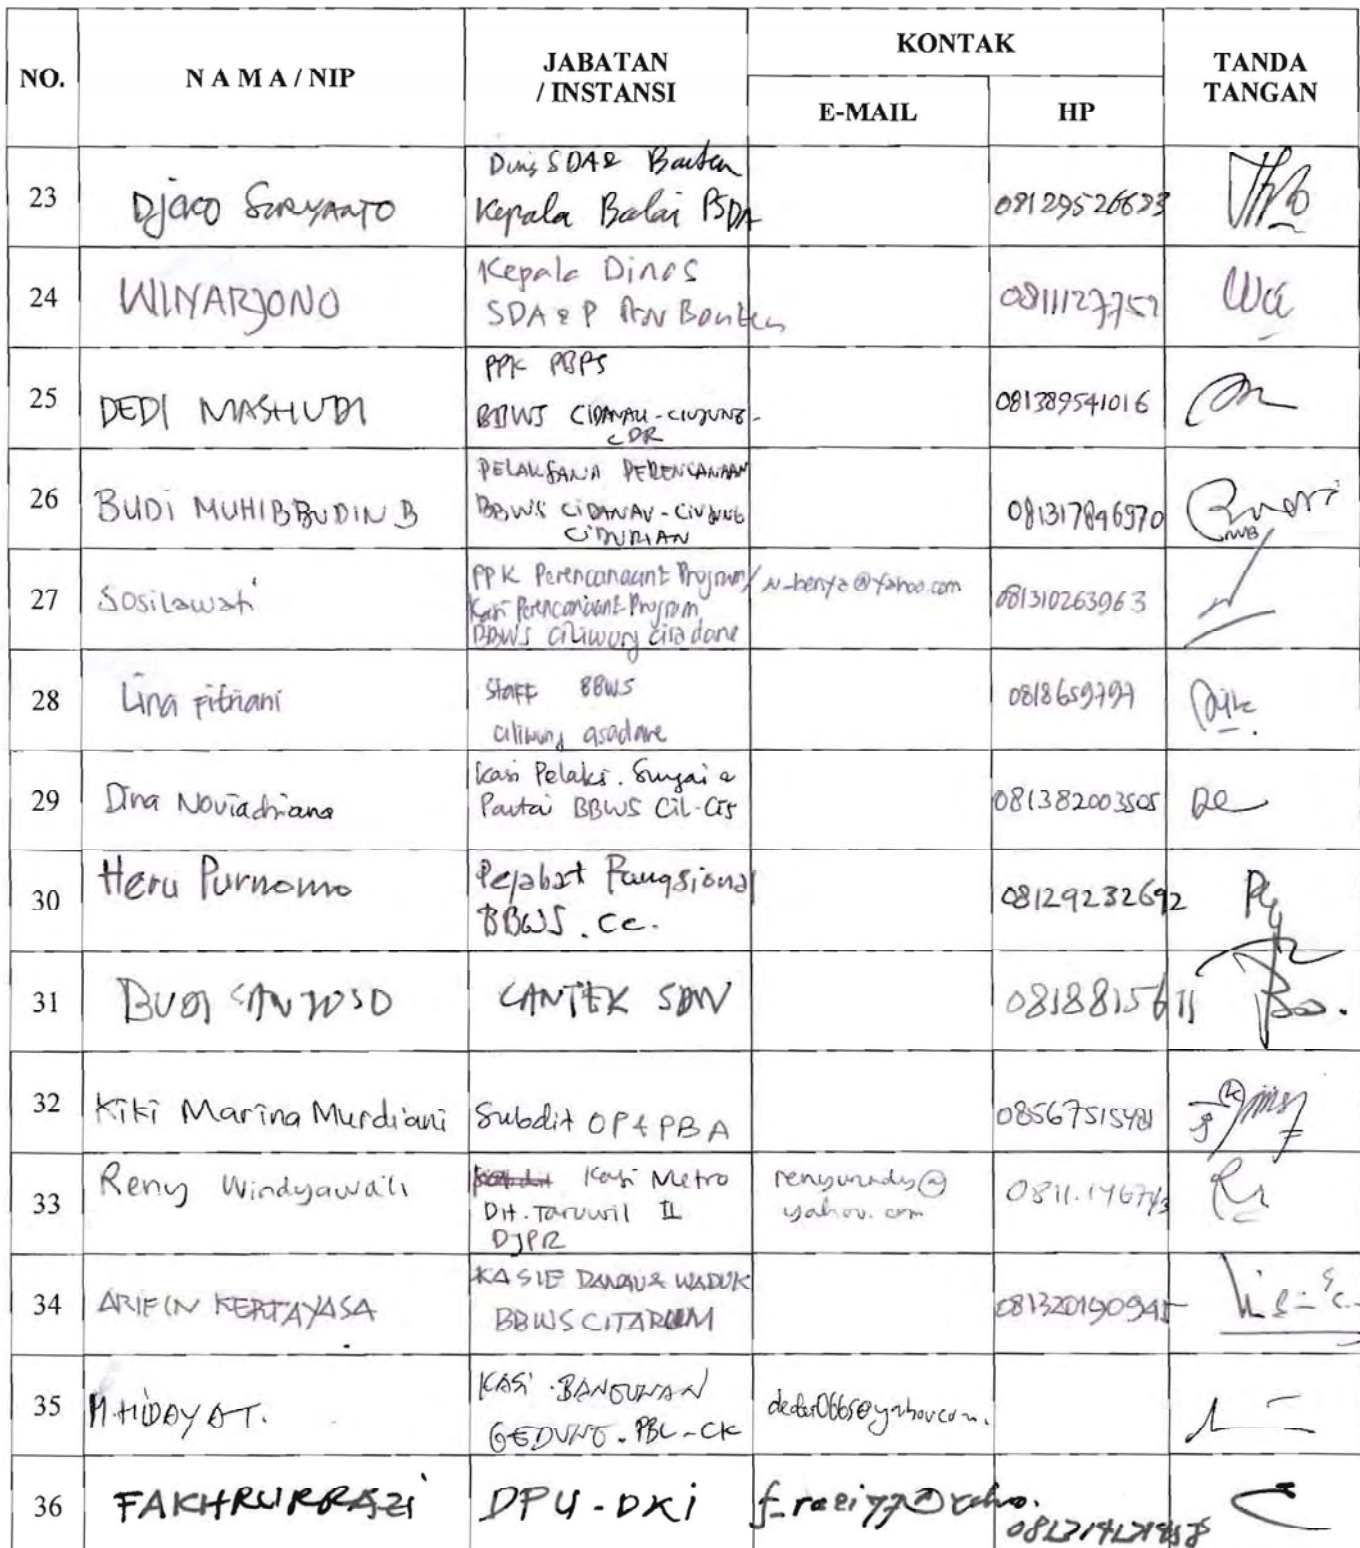 NO.
N A M A / NIP
JABATAN
/ INSTANSI
KONTAK
E-MAIL
HP
TANDA
TANGAN
23
Djoko Suryanto
Dinas SDA& Banten
Kepala Balai PSDA
081295266
24
WINARJONO
Kepala Dinas
SDA & P Banten
25
DEDI MASHUDI
PPK PBPS
BBWS CIDANAU-CIUJUNG-
CDR
081389541016
26
BUDI MUHIBBUDIN B
PELAKSANA PERENCANAAN
BBWS CIDANAU-CIUJUNG
CIDURIAN
081317846970
27
Sosilawati
PPK Perencanaan & Program/
Kasi Perencanaan & Program
BBWS Ciliwung Cisadane
081310263963
28
Lina Fitriani
Staff BBWS
ciliwung cisadane
0818659797
29
Dina Noviadriana
Kasi Pelaks. Sungai &
Pantai BBWS Cil-Cis
081382003505
30
Heru Purnomo
Pejabat Fungsional
BBWS . CC.
08129232692
31
BUDI SANTOSO
SDW
0818815611
32
Kiki Marina Murdiani
Subdit OP & PBA
33
Reny Windyawati
Kasi Metro
Dit. Taruwil II
DJPR
yahoo.com
34
ARIFIN KERTAYASA
KASIE DANAU & WADUK
BBWS CITARUM
35
M. HIDAYAT.
KASI BANGUNAN
GEDUNG - PBL - CK
36
FAKHRURRAZI
DPU - DKI